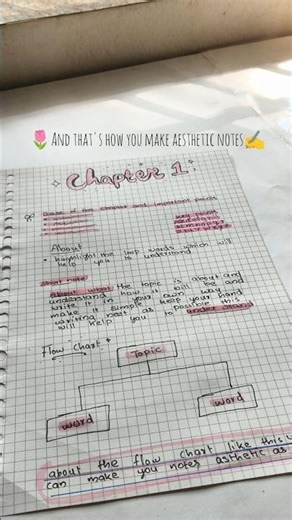 🌷 And that's how you make aesthetic notes ✍️
Chapter 1
Name of the chapter and important points
key point
About
highlight the imp words which will
help you understand
Short note
about what the topic is about and
understand how it will be and
write it in your own way and
make it simple keep your hand
writing neat as possible this
will help you to understand
Flow chart
Topic
word
word
about the flow chart like this u
can make you notes asthetic as